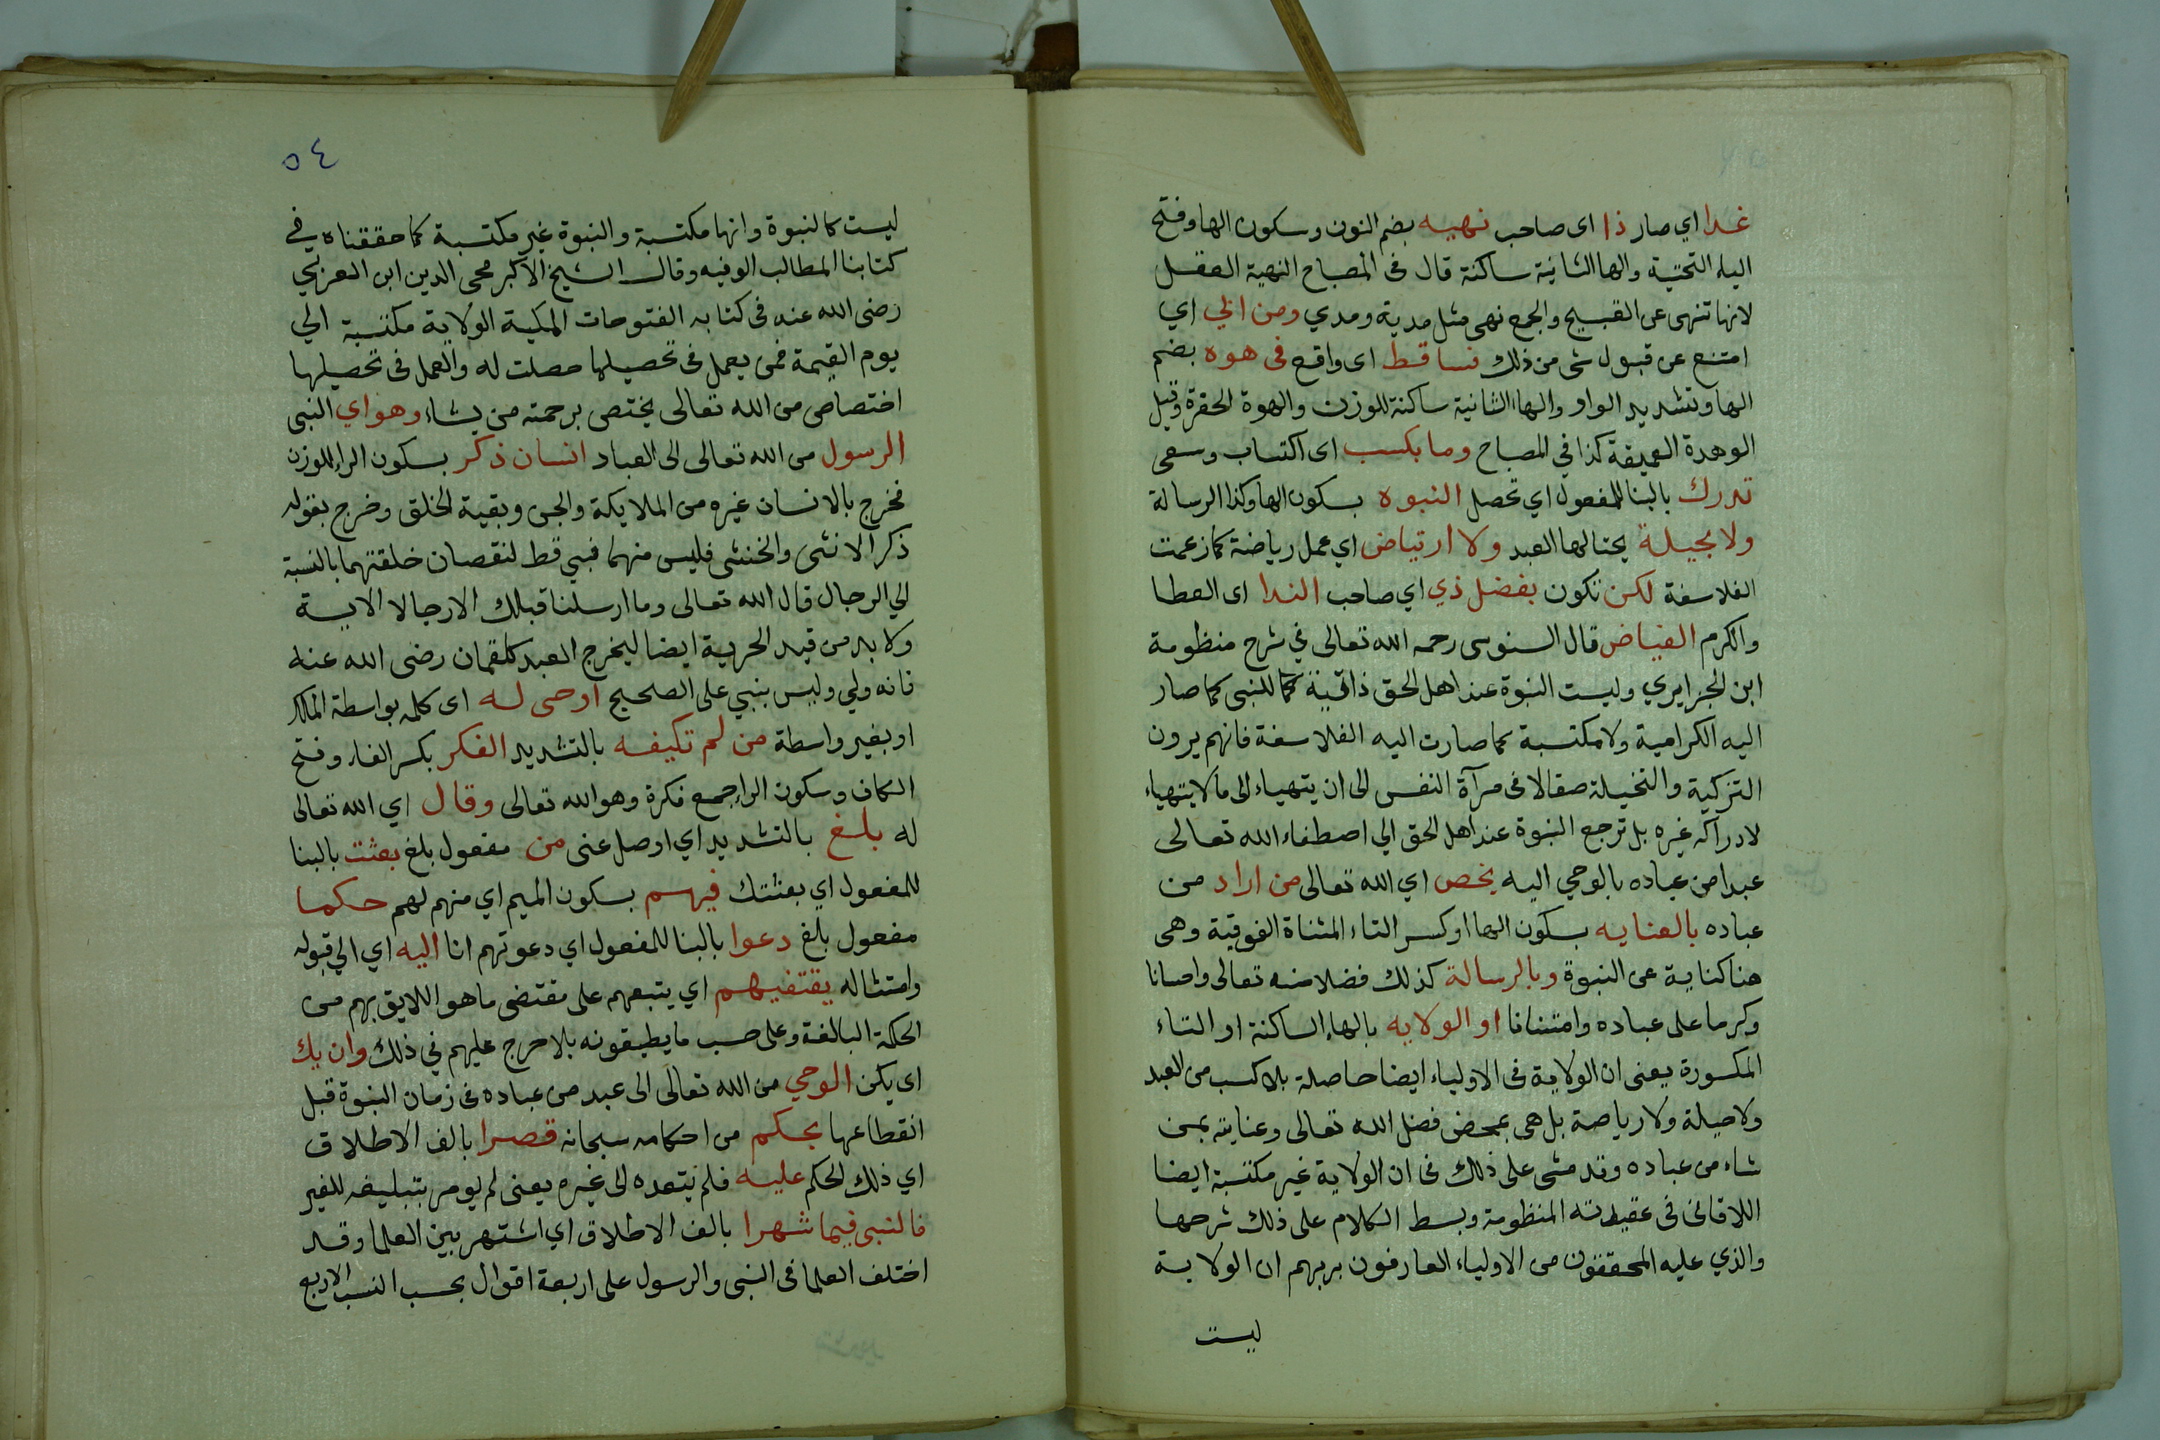 غدا اي صار ذا اى صاحب نهيه بضم النون وسكون الها وفتح
الياء التحتية والها الثانية ساكنة قال فى المصباح النهية العقل
لانها تنهى عن القبيح والجمع نهى مثل مدية ومدي ومن ابي اي
امتنع عن قبول شى من ذلك فساقط اى واقع فى هوه بضم
الها وتشديد الواو والها الثانية ساكنة للوزن والهوة الحفرة وقيل
الوهدة العميقة كذا في المصباح وما بكسب اى اكتساب وسعى
تدرك بالبنا للمفعول اي تحصل النبوه بسكون الها وكذا الرسالة
ولا بحيلة يحتالها العبد ولا ارتياض اي عمل رياضة كما زعمت
الفلاسفة لكن تكون بفضل ذي اي صاحب الندا اى العطا
والكرم الفياض قال السنوسى رحمه الله تعالى في شرح منظومة
ابن الجزايري وليست النبوة عند اهل الحق ذاتية للنبى كما صار
اليه الكرامية ولا مكتسبة كما صارت اليه الفلاسفة فانهم يرون
التزكية والتخيلة صقالا فى مرآة النفس الى ان يتهياء الى ما لا يتهياء
لادراكه غيره بل ترجع النبوة عند اهل الحق الي اصطفاء الله تعالى
عبدا من عباده بالوحي اليه يخص اي الله تعالى من اراد من
عباده بالعنايه بسكون الها او كسر التاء المثناة الفوقية وهى
هنا كناية عن النبوة وبالرسالة كذلك فضلا منه تعالى واحسانا
وكرما على عباده وامتنانا او الولايه بالهاء الساكنة او التاء
المكسورة يعنى ان الولاية فى الاولياء ايضا حاصلة بلا كسب من العبد
ولا حيلة ولا رياضة بل هى بمحض فضل الله تعالى وعنايته بمن
شاء من عباده وقد مشى على ذلك فى ان الولاية غير مكتسبة ايضا
اللاقانى فى عقيدته المنظومة وبسط الكلام على ذلك شرحها
والذي عليه المحققون من الاولياء العارفون بربهم ان الولاية
ليست
٥٤
ليست كالنبوة وانها مكتسبة والنبوة غير مكتسبة كما حققناه في
كتابنا المطالب الوفيه وقال الشيخ الاكبر محى الدين ابن العربي
رضى الله عنه فى كتابه الفتوحات المكية الولاية مكتسبة الي
يوم القيمة فمن يعمل فى تحصيلها حصلت له والعمل فى تحصيلها
اختصاص من الله تعالى يختص برحمته من يشاء وهو اي النبى
الرسول من الله تعالى الى العباد انسان ذكر بسكون الراء للوزن
فخرج بالانسان غيره من الملايكة والجن وبقية الخلق وخرج بقوله
ذكر الانثى والخنثى فليس منهما نبي قط لنقصان خلقتهما بالنسبة
الي الرجال قال الله تعالى وما ارسلنا قبلك الا رجالا الاية
ولا بد من قيد الحرية ايضا ليخرج العبد كلقمان رضى الله عنه
فانه ولي وليس بنبي على الصحيح اوحى له اى كلمه بواسطة الملك
او بغير واسطة من لم تكيفه بالتشديد الفكر بكسر الفاء وفتح
الكاف وسكون الراء جمع فكرة وهو الله تعالى وقال اي الله تعالى
له بلغ بالتشديد اي اوصل عنى من مفعول بلغ بعثت بالبنا
للمفعول اي بعثتك فيهم بسكون الميم اي منهم لهم حكما
مفعول بلغ دعوا بالبنا للمفعول اي دعوتهم انا اليه اي الي قبوله
وامتثاله يقتفيهم اي يتبعهم على مقتضى ما هو اللايق بهم من
الحكمة البالغة وعلى حسب ما يطيقونه بلا حرج عليهم في ذلك وان يك
اى يكن الوحي من الله تعالى الى عبد من عباده فى زمان النبوة قبل
انقطاعها بحكم من احكامه سبحانه قصرا بالف الاطلاق
اي ذلك الحكم عليه فلم يتعده الى غيره يعنى لم يومر بتبليغه للغير
فالنبى فيما شهرا بالف الاطلاق اي اشتهر بين العلما وقد
اختلف العلما فى النبى والرسول على اربعة اقوال بحسب النسب الاربع